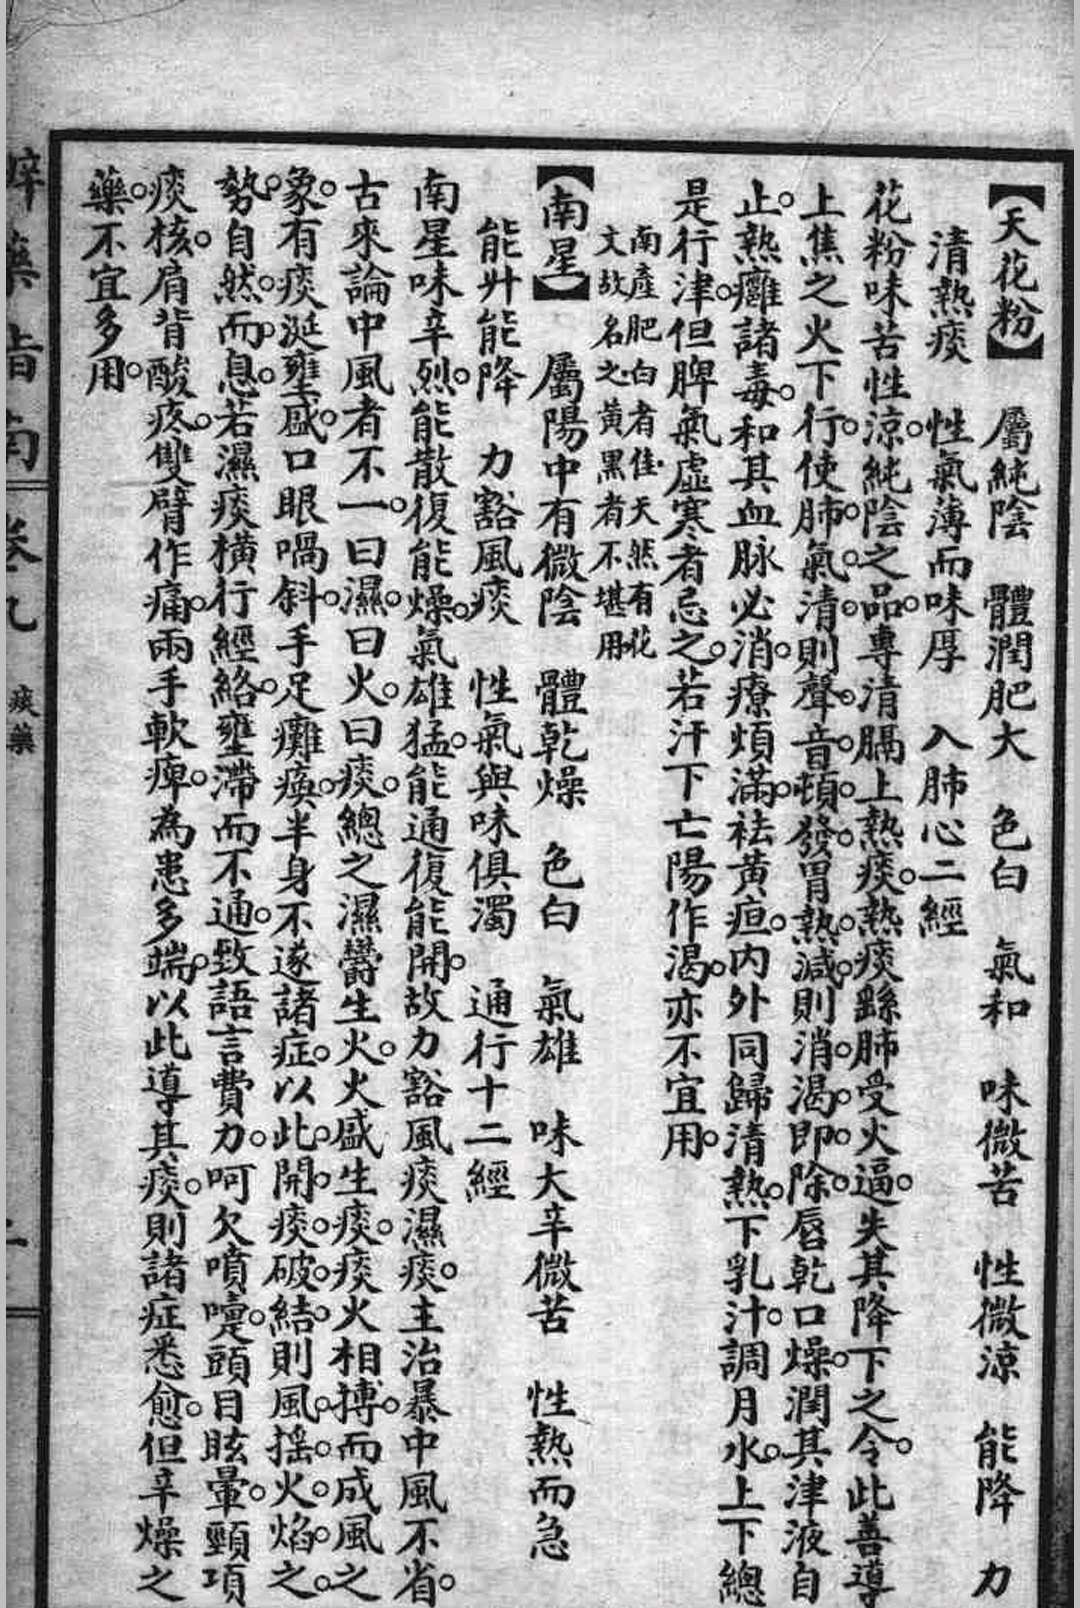 【天花粉】 屬純陰 體潤肥大 色白 氣和 味微苦 性微涼 能降 力
清熱痰 性氣薄而味厚 入肺心二經
花粉味苦性涼。純陰之品。專清膈上熱痰。熱痰繇肺受火逼。失其降下之令。此善導
上焦之火下行。使肺氣清。則聲音頓發。胃熱減。則消渴即除。唇乾口燥。潤其津液自
止。熱癰諸毒。和其血脉必消。療煩滿。祛黃疸。內外同歸清熱。下乳汁。調月水。上下總
是行津。但脾氣虛寒者忌之。若汗下亡陽作渴。亦不宜用。
南產肥白者佳天然有花
文故名之黃黑者不堪用
【南星】 屬陽中有微陰 體乾燥 色白 氣雄 味大辛微苦 性熱而急
能升能降 力豁風痰 性氣與味俱濁 通行十二經
南星味辛烈。能散復能燥。氣雄猛。能通復能開。故力豁風痰濕痰。主治暴中風不省。
古來論中風者不一。曰濕。曰火。曰痰。總之濕鬱生火。火盛生痰。痰火相搏。而成風之
象。有痰涎壅盛。口眼喎斜。手足癱瘓。半身不遂諸症。以此開痰破結。則風搖火焰之
勢。自然而息。若濕痰橫行經絡。壅滯而不通。致語言費力。呵欠噴嚏。頭目眩暈。頸項
痰核。肩背酸疼。雙臂作痛。兩手軟痺。為患多端。以此導其痰。則諸症悉愈。但辛燥之
藥。不宜多用。
藥 指 南 卷九 痰藥